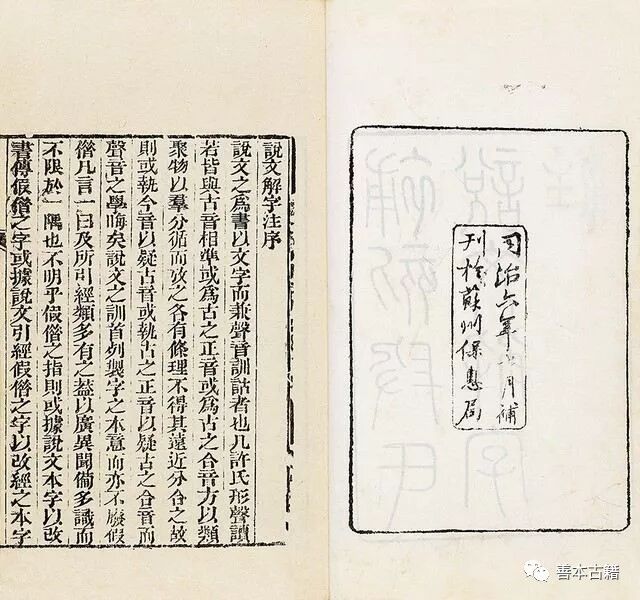 同治六年月補
刊於蘇州保息局
說文解字注序
說文之爲書以文字而兼聲音訓詁者也凡許氏形聲讀
若皆與古音相準或爲古之正音或爲古之合音方以類
聚物以羣分循而攷之各有條理不得其遠近分合之故
則或執今音以疑古音或執古之正音以疑古之合音而
聲音之學晦矣說文之訓首列製字之本意而亦不廢假
借凡言一曰及所引經類多有之葢以廣異聞備多識而
不限於一隅也不明乎假借之指則或據說文本字以改
書傳假借之字或據說文引經假借之字以改經之本字
善本古籍